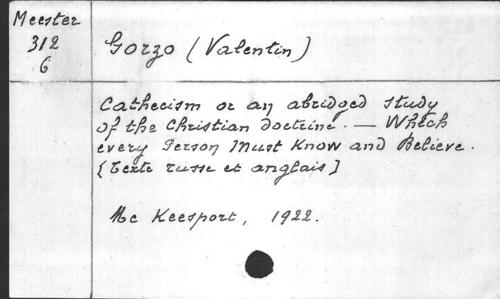 Meester
312
6
Gorzo (Valentin)
Cathecism or an abridged study
of the Christian doctrine. — Which
every Person Must Know and Believe.
[Texte russe et anglais]
Mc Keesport, 1922.